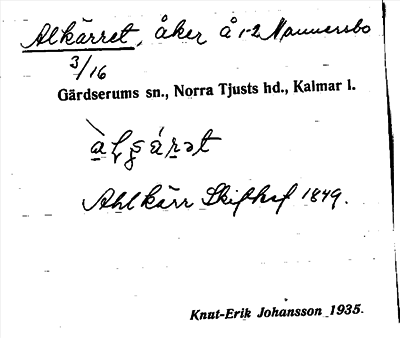 Alkärret, åker å 1-2 Mannersbo
3/16
Gärdserums sn., Norra Tjusts hd., Kalmar l.
Ahlkärr Skifthsf 1849.
Knut-Erik Johansson 1935.